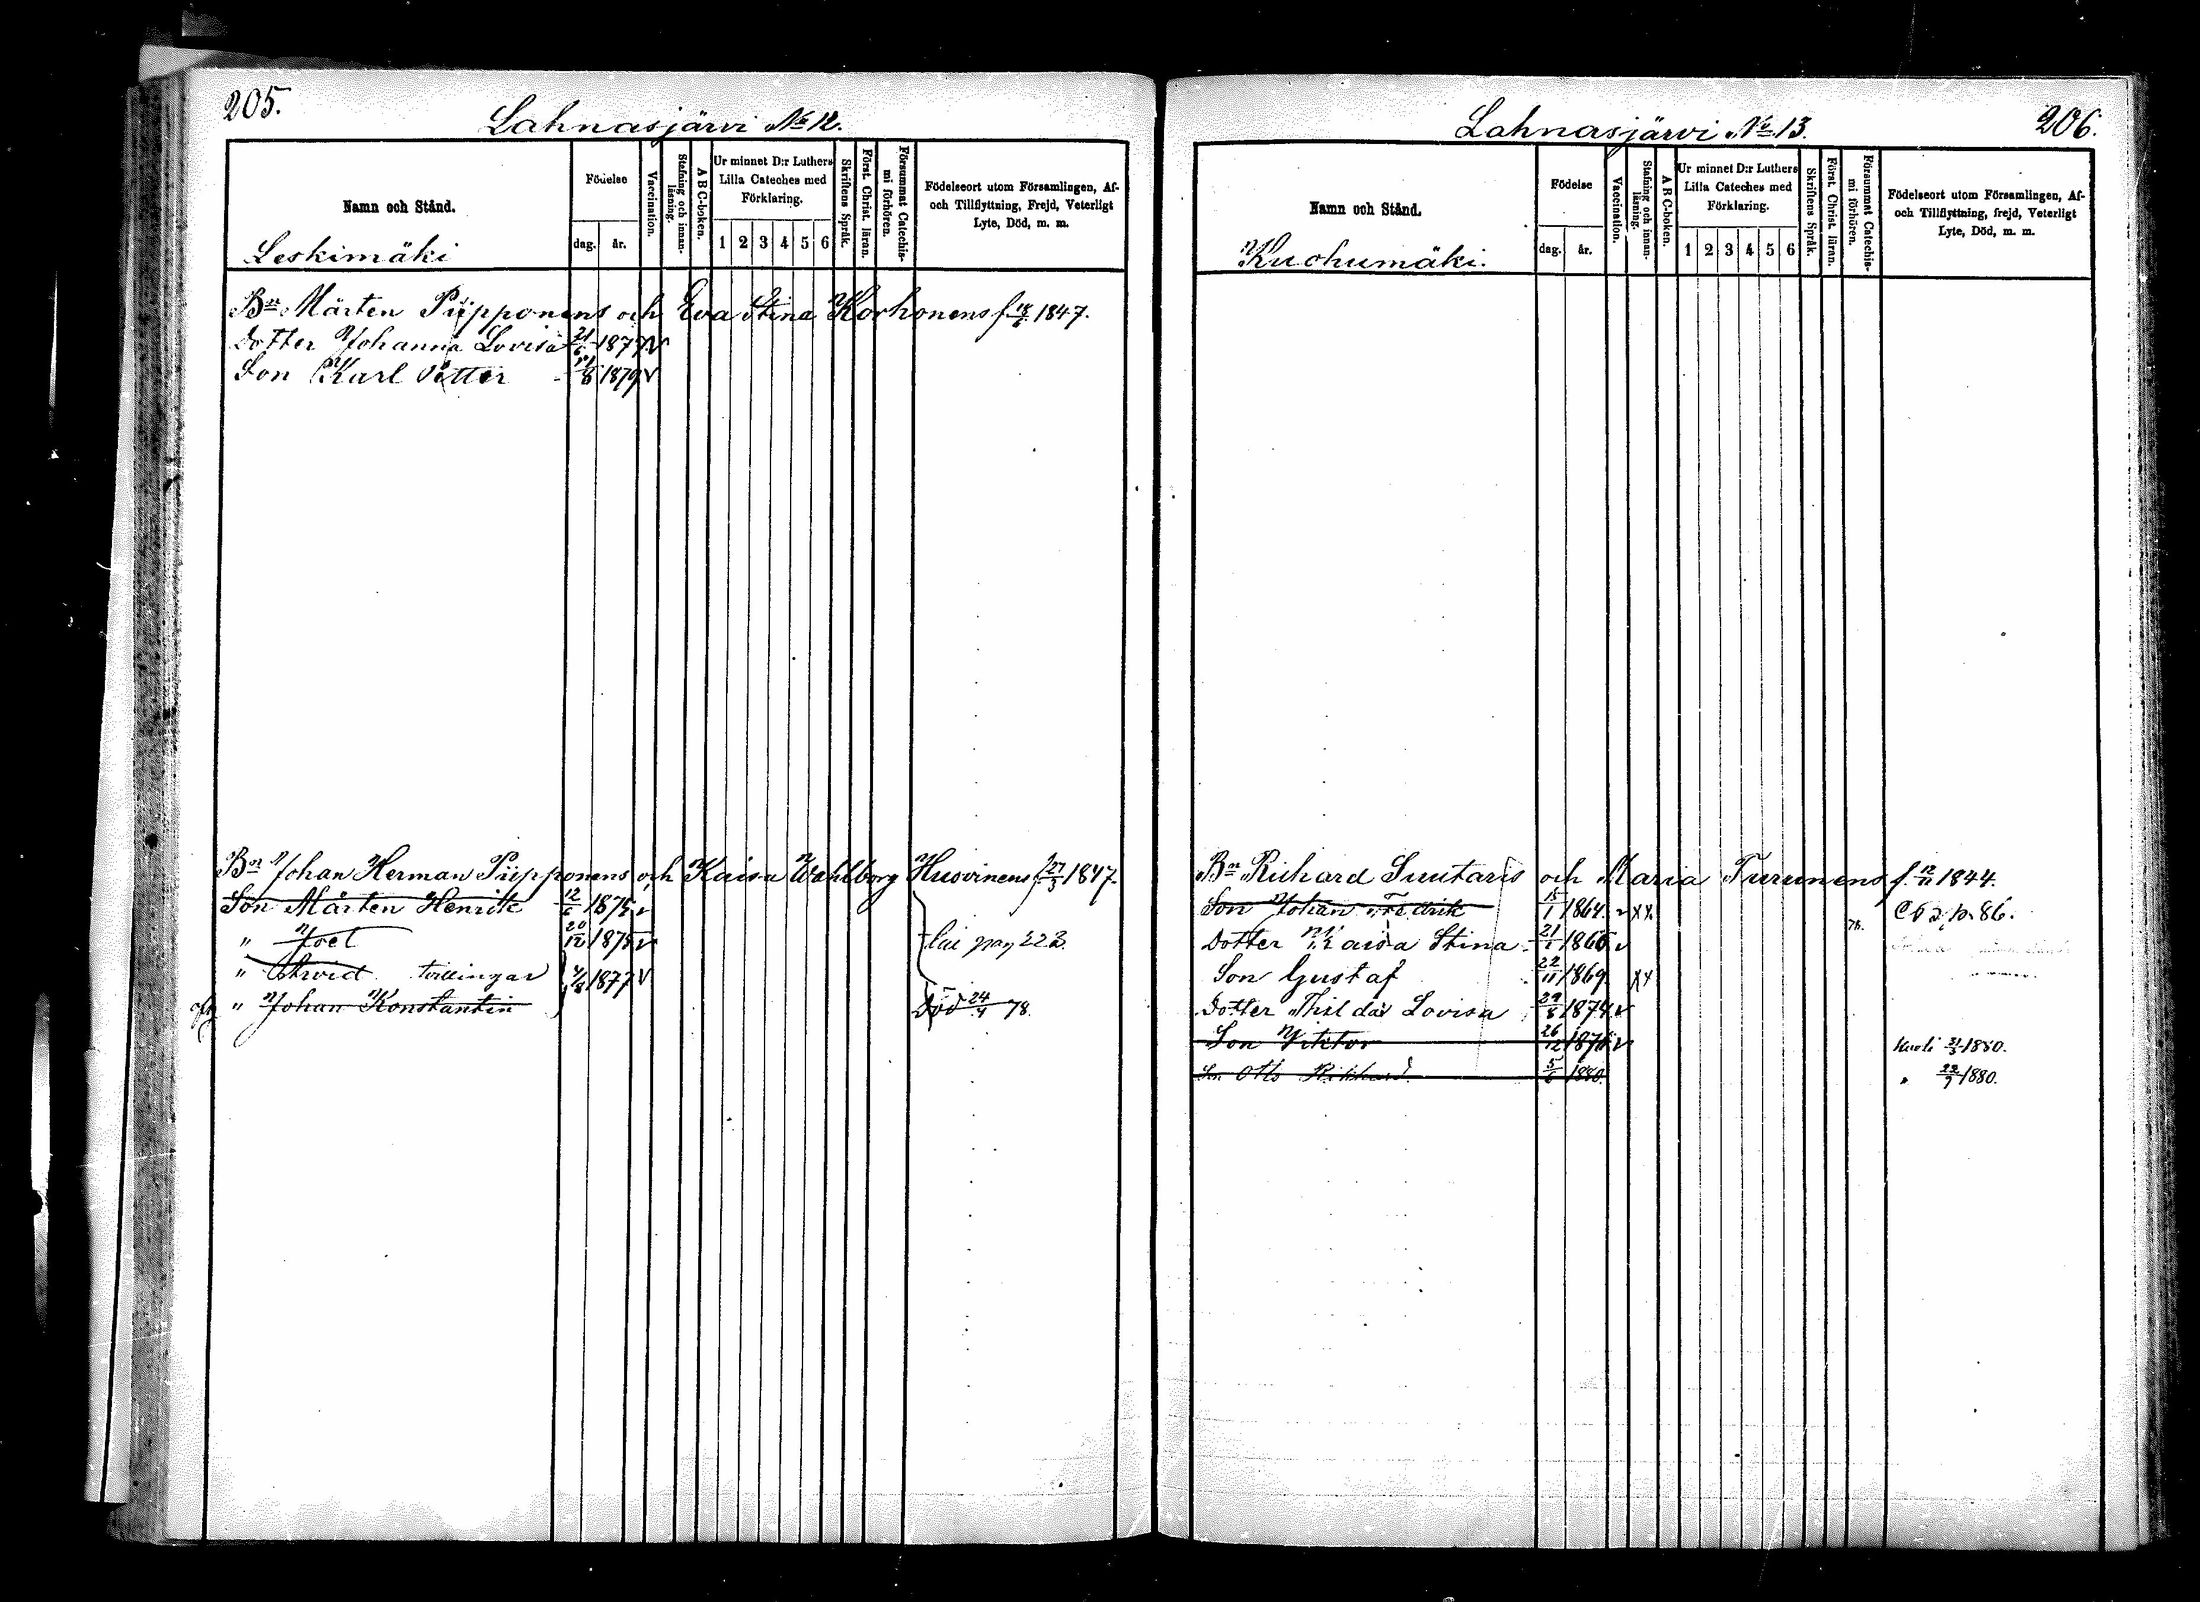 205.
Lahnasjärvi No 12.
Namn och Stånd.
Födelse
dag.
år.
Vaccination.
Stafning och innan-
läsning.
A B C-boken.
Ur minnet D:r Luthers
Lilla Cateches med
Förklaring.
1 2 3 4 5 6
Skriftens Språk.
Först. Christ. läran.
Försummat Catechis-
mi förhören.
Födelseort utom Församlingen, Af-
och Tillflyttning, Frejd, Veterligt
Lyte, Död, m. m.
Leskimäki
Bn Mårten Piipponens och Eva Stina Korhonens f. 1847.
Dotter Johanna Lovisa 21/6 1877 v
Son Karl Petter 1879 v
Bn Johan Herman Piipponens och Kaisa Wahlborg Husvinens f. 27/3 1847.
Son Mårten Henrik 12/6 1875 v
" Joel 20/12 1875 v
" Arvid tvillingar 1877 v
pag 222
" Johan Konstantin Död 24/4 78.
Lahnasjärvi No 13.
206.
Namn och Stånd.
Födelse
dag.
år.
Vaccination.
Stafning och innan-
läsning.
A B C-boken.
Ur minnet D:r Luthers
Lilla Cateches med
Förklaring.
1 2 3 4 5 6
Skriftens Språk.
Först. Christ. läran.
Försummat Catechis-
mi förhören.
Födelseort utom Församlingen, Af-
och Tillflyttning, frejd, Veterligt
Lyte, Död, m. m.
Kuohumäki.
Bn Richard Suutaris och Maria Turunens f. 12/11 1844.
Son Johan Fredrik 15/1 1864. v xx p. 86.
Dotter Kaisa Stina 21/1 1866 v 78.
Son Gustaf 22/11 1869 xx
Dotter Thilda Lovisa 29/8 1874 v
Son Viktor 26/12 1876 v Kuoli 21/3 1880.
Son Otto Rikhard 5/6 1880. " 22/9 1880.